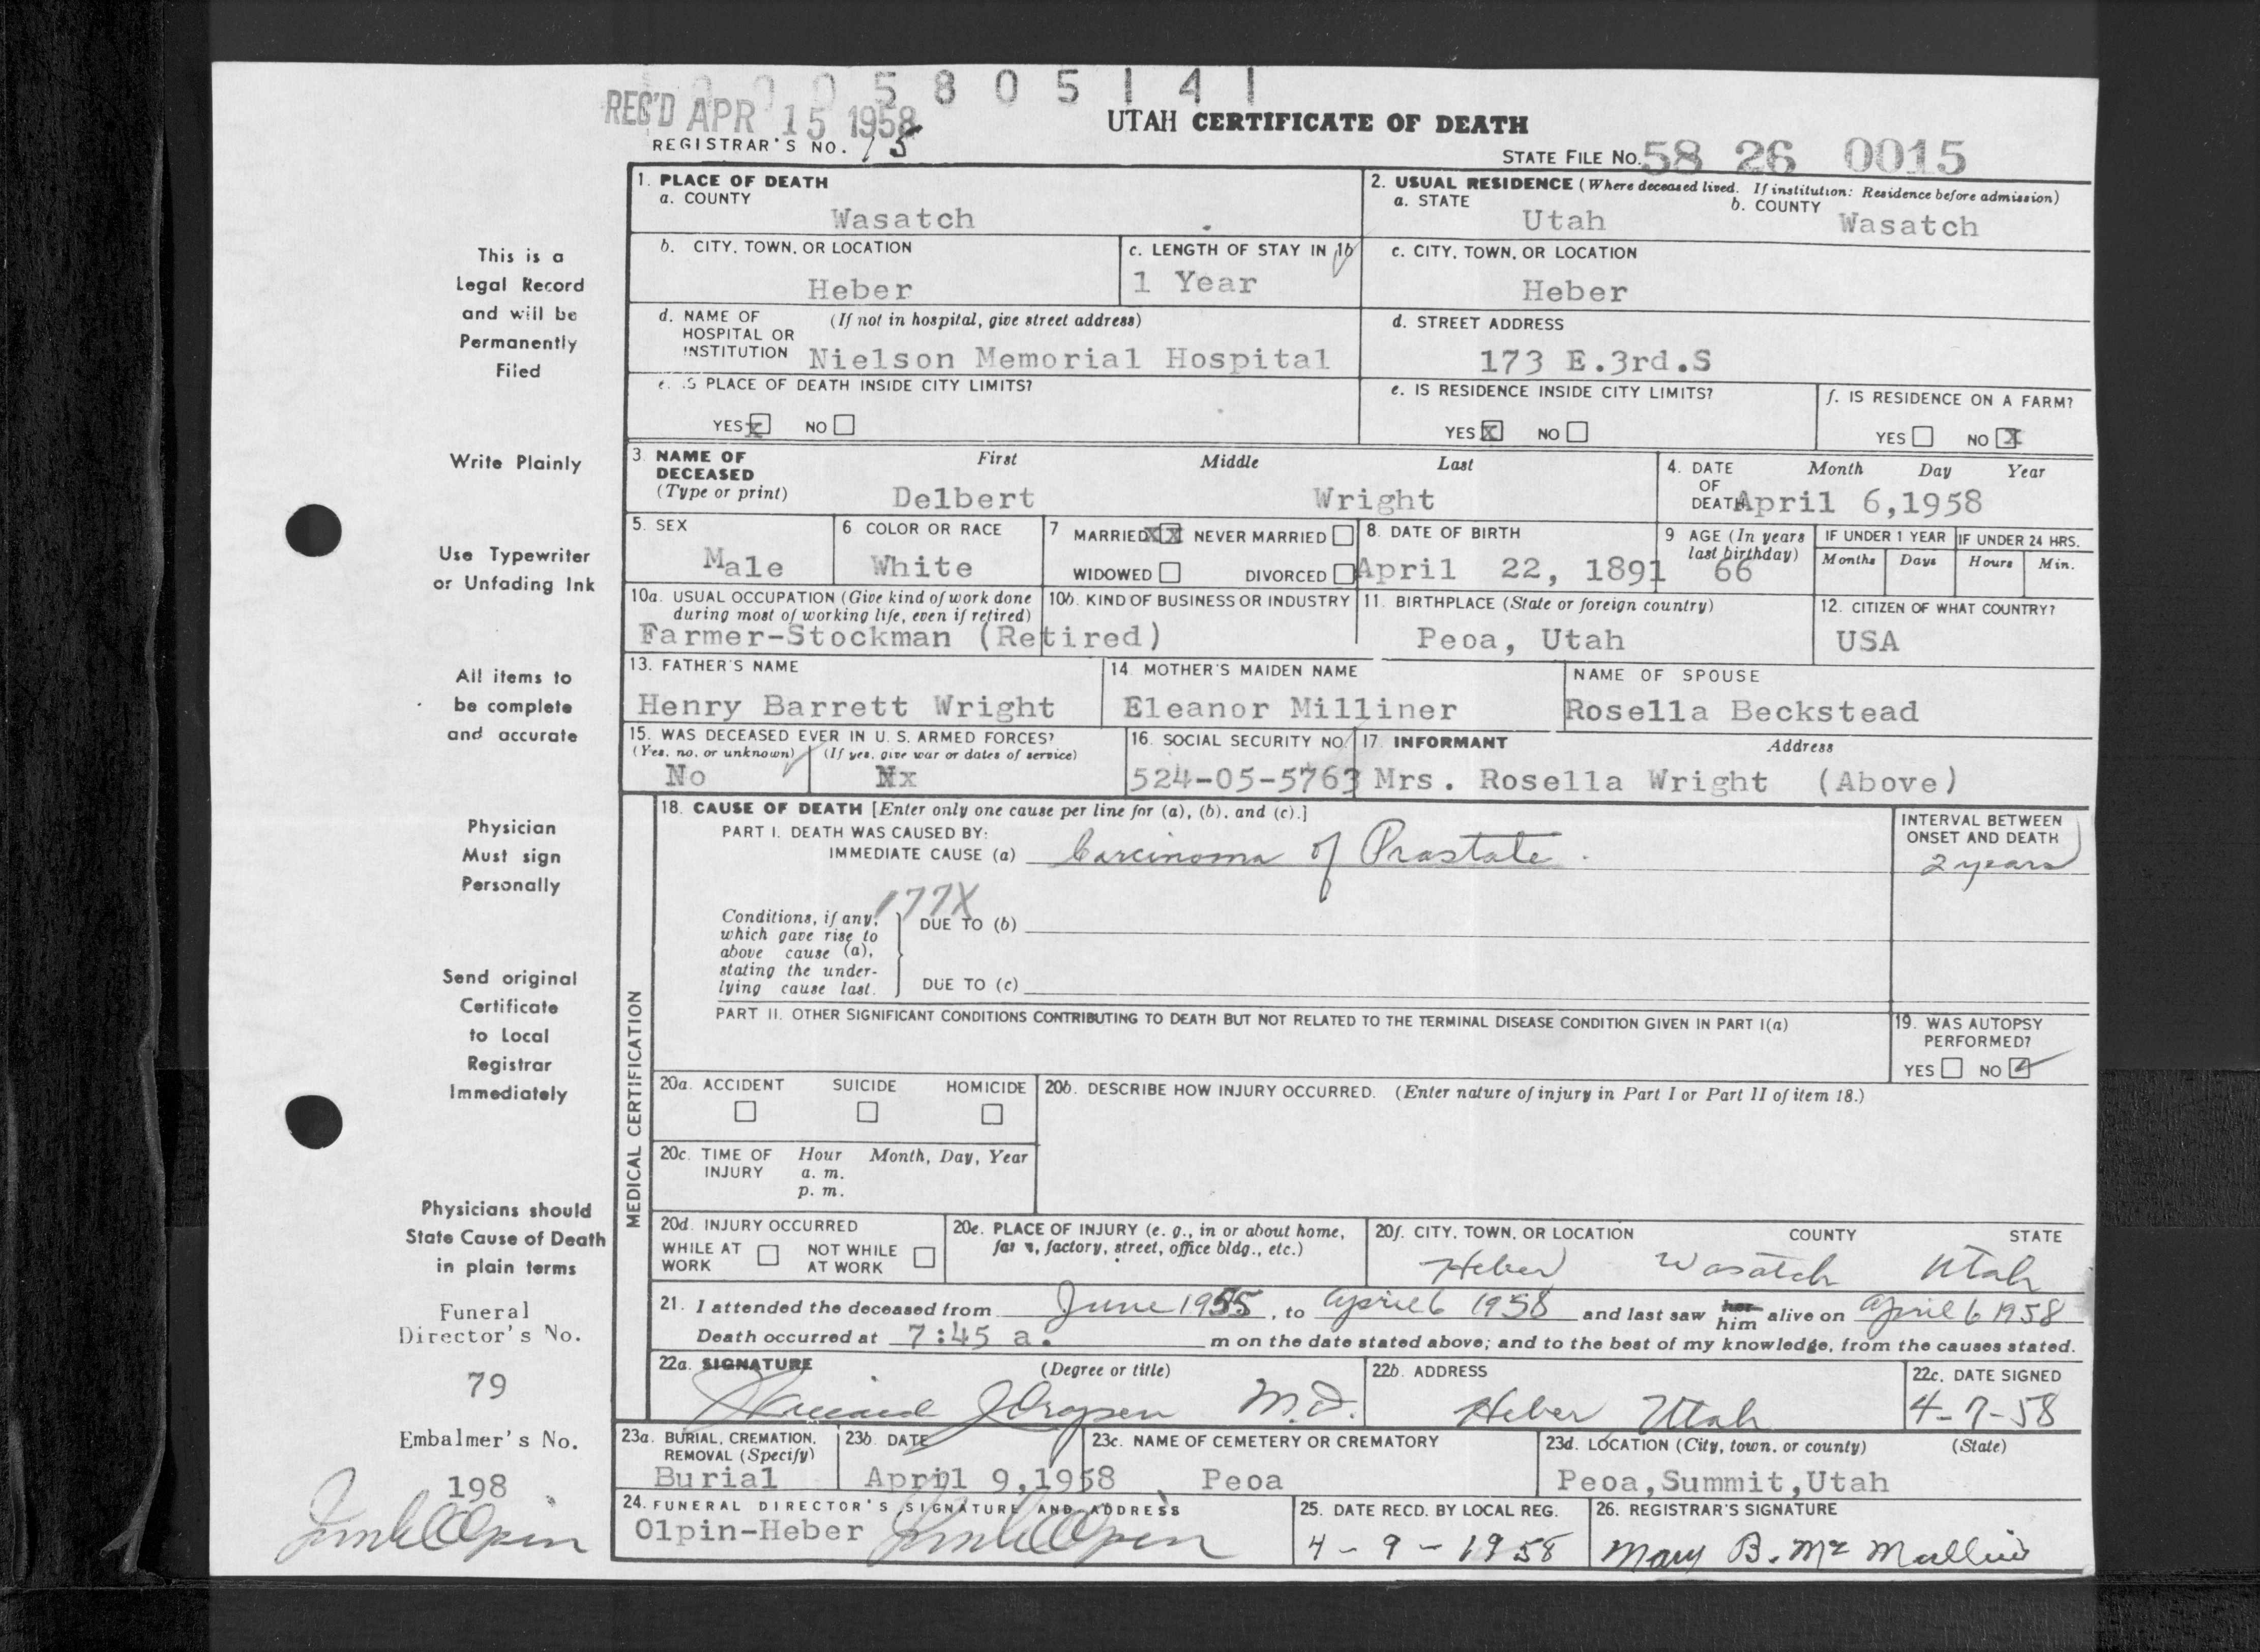 0005805141
REC'D APR 15 1958
UTAH CERTIFICATE OF DEATH
REGISTRAR'S NO. 15
STATE FILE NO. 58 26 0015
1. PLACE OF DEATH
a. COUNTY
Wasatch
2. USUAL RESIDENCE (Where deceased lived. If institution: Residence before admission)
a. STATE
Utah
b. COUNTY
Wasatch
b. CITY, TOWN, OR LOCATION
Heber
c. LENGTH OF STAY IN 1b
1 Year
c. CITY, TOWN, OR LOCATION
Heber
d. NAME OF HOSPITAL OR INSTITUTION
(If not in hospital, give street address)
Nielson Memorial Hospital
d. STREET ADDRESS
173 E.3rd.S
e. IS PLACE OF DEATH INSIDE CITY LIMITS?
YES x NO
e. IS RESIDENCE INSIDE CITY LIMITS?
YES X NO
f. IS RESIDENCE ON A FARM?
YES NO X
3. NAME OF DECEASED (Type or print)
First Middle Last
Delbert Wright
4. DATE OF DEATH
Month Day Year
April 6,1958
5. SEX
Male
6 COLOR OR RACE
White
7 MARRIED XX NEVER MARRIED
WIDOWED DIVORCED
8. DATE OF BIRTH
April 22, 1891
9 AGE (In years last birthday)
66
IF UNDER 1 YEAR
Months Days
IF UNDER 24 HRS.
Hours Min.
10a. USUAL OCCUPATION (Give kind of work done during most of working life, even if retired)
Farmer-Stockman (Retired)
10b. KIND OF BUSINESS OR INDUSTRY
11. BIRTHPLACE (State or foreign country)
Peoa, Utah
12. CITIZEN OF WHAT COUNTRY?
USA
13. FATHER'S NAME
Henry Barrett Wright
14. MOTHER'S MAIDEN NAME
Eleanor Milliner
NAME OF SPOUSE
Rosella Beckstead
15. WAS DECEASED EVER IN U. S. ARMED FORCES?
(Yes, no, or unknown) (If yes, give war or dates of service)
No Nx
16. SOCIAL SECURITY NO.
524-05-5763
17. INFORMANT Address
Mrs. Rosella Wright (Above)
MEDICAL CERTIFICATION
18. CAUSE OF DEATH [Enter only one cause per line for (a), (b), and (c).]
PART I. DEATH WAS CAUSED BY:
IMMEDIATE CAUSE (a) Carcinoma of Prostate.
INTERVAL BETWEEN ONSET AND DEATH
2 years
177X
Conditions, if any, which gave rise to above cause (a), stating the underlying cause last.
DUE TO (b)
DUE TO (c)
PART II. OTHER SIGNIFICANT CONDITIONS CONTRIBUTING TO DEATH BUT NOT RELATED TO THE TERMINAL DISEASE CONDITION GIVEN IN PART I(a)
19. WAS AUTOPSY PERFORMED?
YES NO ✓
20a. ACCIDENT SUICIDE HOMICIDE
20b. DESCRIBE HOW INJURY OCCURRED. (Enter nature of injury in Part I or Part II of item 18.)
20c. TIME OF INJURY Hour Month, Day, Year
a. m.
p. m.
20d. INJURY OCCURRED
WHILE AT WORK NOT WHILE AT WORK
20e. PLACE OF INJURY (e. g., in or about home, farm, factory, street, office bldg., etc.)
20f. CITY, TOWN, OR LOCATION COUNTY STATE
Heber Wasatch Utah
21. I attended the deceased from June 1955, to April 6 1958 and last saw her him alive on April 6 1958
Death occurred at 7:45 a. m on the date stated above; and to the best of my knowledge, from the causes stated.
22a. SIGNATURE (Degree or title)
M.D.
22b. ADDRESS
Heber Utah
22c. DATE SIGNED
4-7-58
23a. BURIAL, CREMATION, REMOVAL (Specify)
Burial
23b. DATE
April 9,1958
23c. NAME OF CEMETERY OR CREMATORY
Peoa
23d. LOCATION (City, town, or county) (State)
Peoa,Summit,Utah
24. FUNERAL DIRECTOR'S SIGNATURE AND ADDRESS
Olpin-Heber
25. DATE RECD. BY LOCAL REG.
4-9-1958
26. REGISTRAR'S SIGNATURE
Mary B. McMullin
This is a
Legal Record
and will be
Permanently
Filed
Write Plainly
Use Typewriter
or Unfading Ink
All items to
be complete
and accurate
Physician
Must sign
Personally
Send original
Certificate
to Local
Registrar
Immediately
Physicians should
State Cause of Death
in plain terms
Funeral
Director's No.
79
Embalmer's No.
198